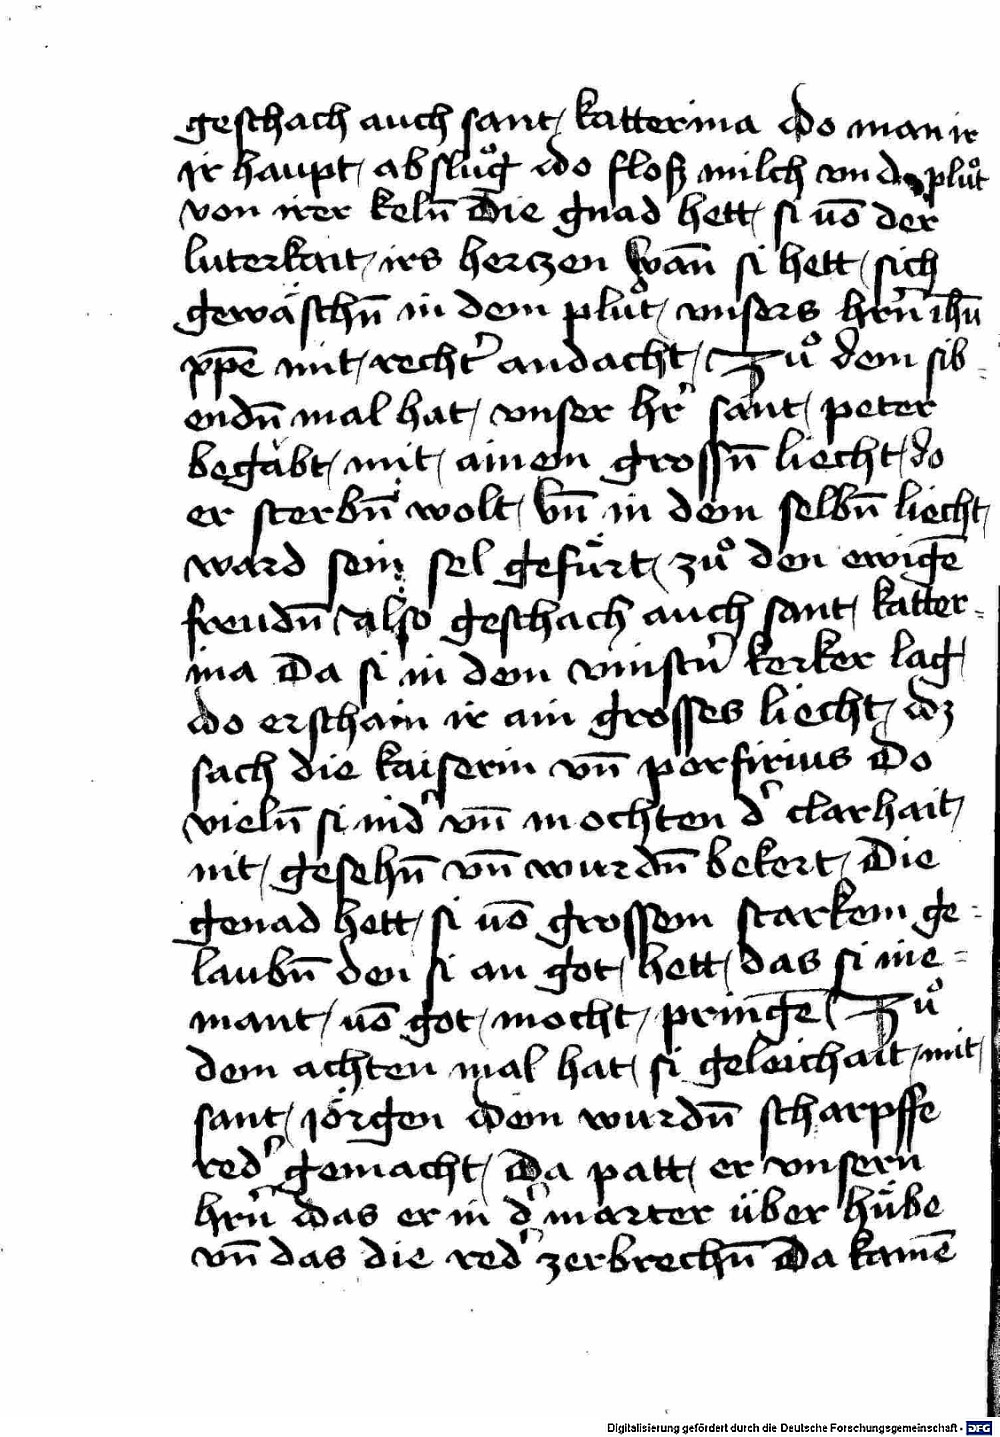 geschach auch sant / katterina do man ir
ir haupt / absluͦg do floß milch vnd pluͦt
von irer keln̄ Die gnad hett / si uō der
luterkait / irs herczen wan̄ si hett / sich
gewäschn̄ in dem pluͦt / vnsers hrn̄ ihū
xp̄e mit / recht' andacht / Zuͦ dem sib-
endn̄ mal hat / vnser hr' sant / peter
begäbt / mit / ainem grossn̄ liecht / do
er sterbn̄ wolt / vn̄ in dem selbn̄ liecht /
ward sein sel gefürt / zuͦ den ewigē
freudn̄ also geschach auch sant / katter-
ina Da si in dem vinstn̄' kerker lag /
do erschain ir ain grosses liecht / dz
sach die kaiserin vn̄ porfirius Do
vieln̄ si nid' vn̄ mochten d' clarhait /
nit / gesehn̄ vn̄ wurdn̄ bekert / Die
genad hett / si uō grossem starkem ge-
laubn̄ den si an got / hett / das si nie-
mant / uō got / mocht / pringē / Zuͦ
dem achten mal hat / si geleichait / mit /
sant / jörgen dem wurdn̄ scharpffe
red' gemacht / Da patt / er vnsern
hrn̄ das er in d' marter über hübe
vn̄ das die red' zerbrechn̄ Da kamē
Digitalisierung gefördert durch die Deutsche Forschungsgemeinschaft - DFG